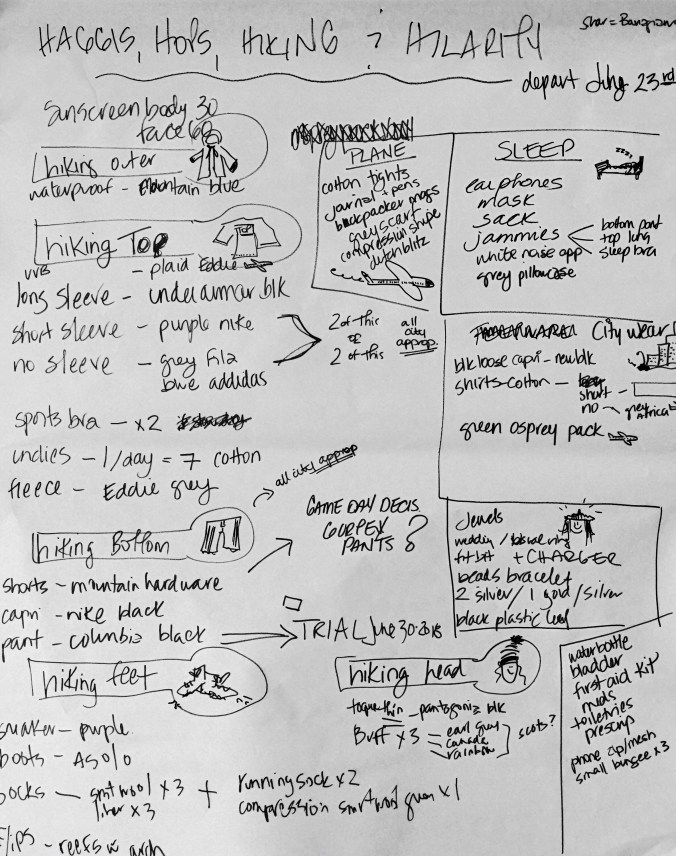 HAGGIS, HOPS, HIKING & HILARITY
depart July 23rd
sunscreen body 30
face 60
hiking outer
waterproof - mountain blue
hiking TOP
TOP
UVB - plaid Eddie
long sleeve - under armar blk
short sleeve - purple nike
no sleeve - grey Fila
blue addidas
2 of this
or
2 of this
all
city
approp.
sports bra - x2
undies - 1/day = 7 cotton
fleece - Eddie grey
all city approp
hiking BOTTOM
shorts - mountain hardware
capri - nike black
pant - columbia black
TRIAL June 30.2018
GAME DAY DECIS.
GORPEX
PANTS?
hiking feet
purple
boots - Asolo
socks - smt wool x3
liner x3
+ running sock x2
compression smartwool x1
flips - reefs w arch
PLANE
cotton tights
jurnal + pens
backpacker mags
grey scarf
compression
dutch blitz
SLEEP
zzz
earphones
mask
sack
jammies
bottom pant
top long
sleep bra
white noise app
grey pillowcase
City wear
blk loose capri - new blk
shirts - cotton -
short -
no - grey Africa
green osprey pack
Jewels
fit bit + CHARGER
beads bracelet
2 silver / 1 gold / silver
black plastic
hiking head
toque thin - patagonia blk
Buff x3 = earl grey
canada
rainbow
scots?
waterbottle
bladder
first aid kit
meds
toiletries
prescrip
phone
small bungee x3